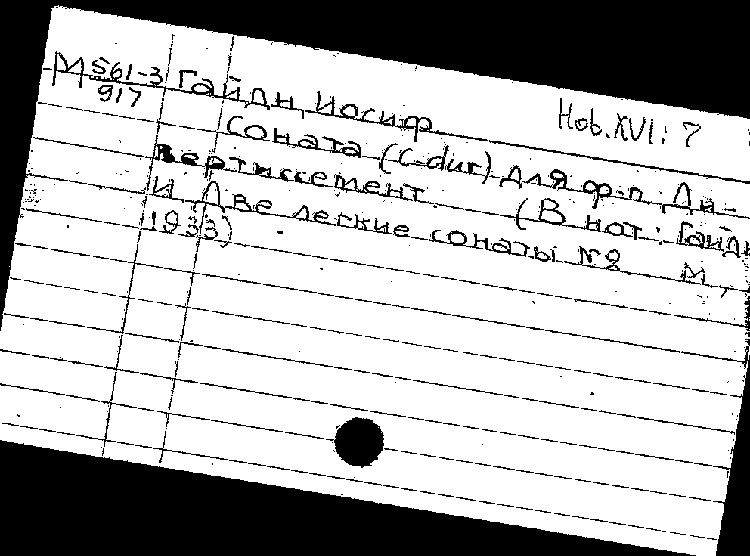 М 561-3 Гайдн, Иосиф.
917
Hob. XVI: 7
Соната (C-dur) для ф-п. Ди-
вертиссемент. (В нот: Гайдн
И. Две легкие сонаты №2 М.,
1933)